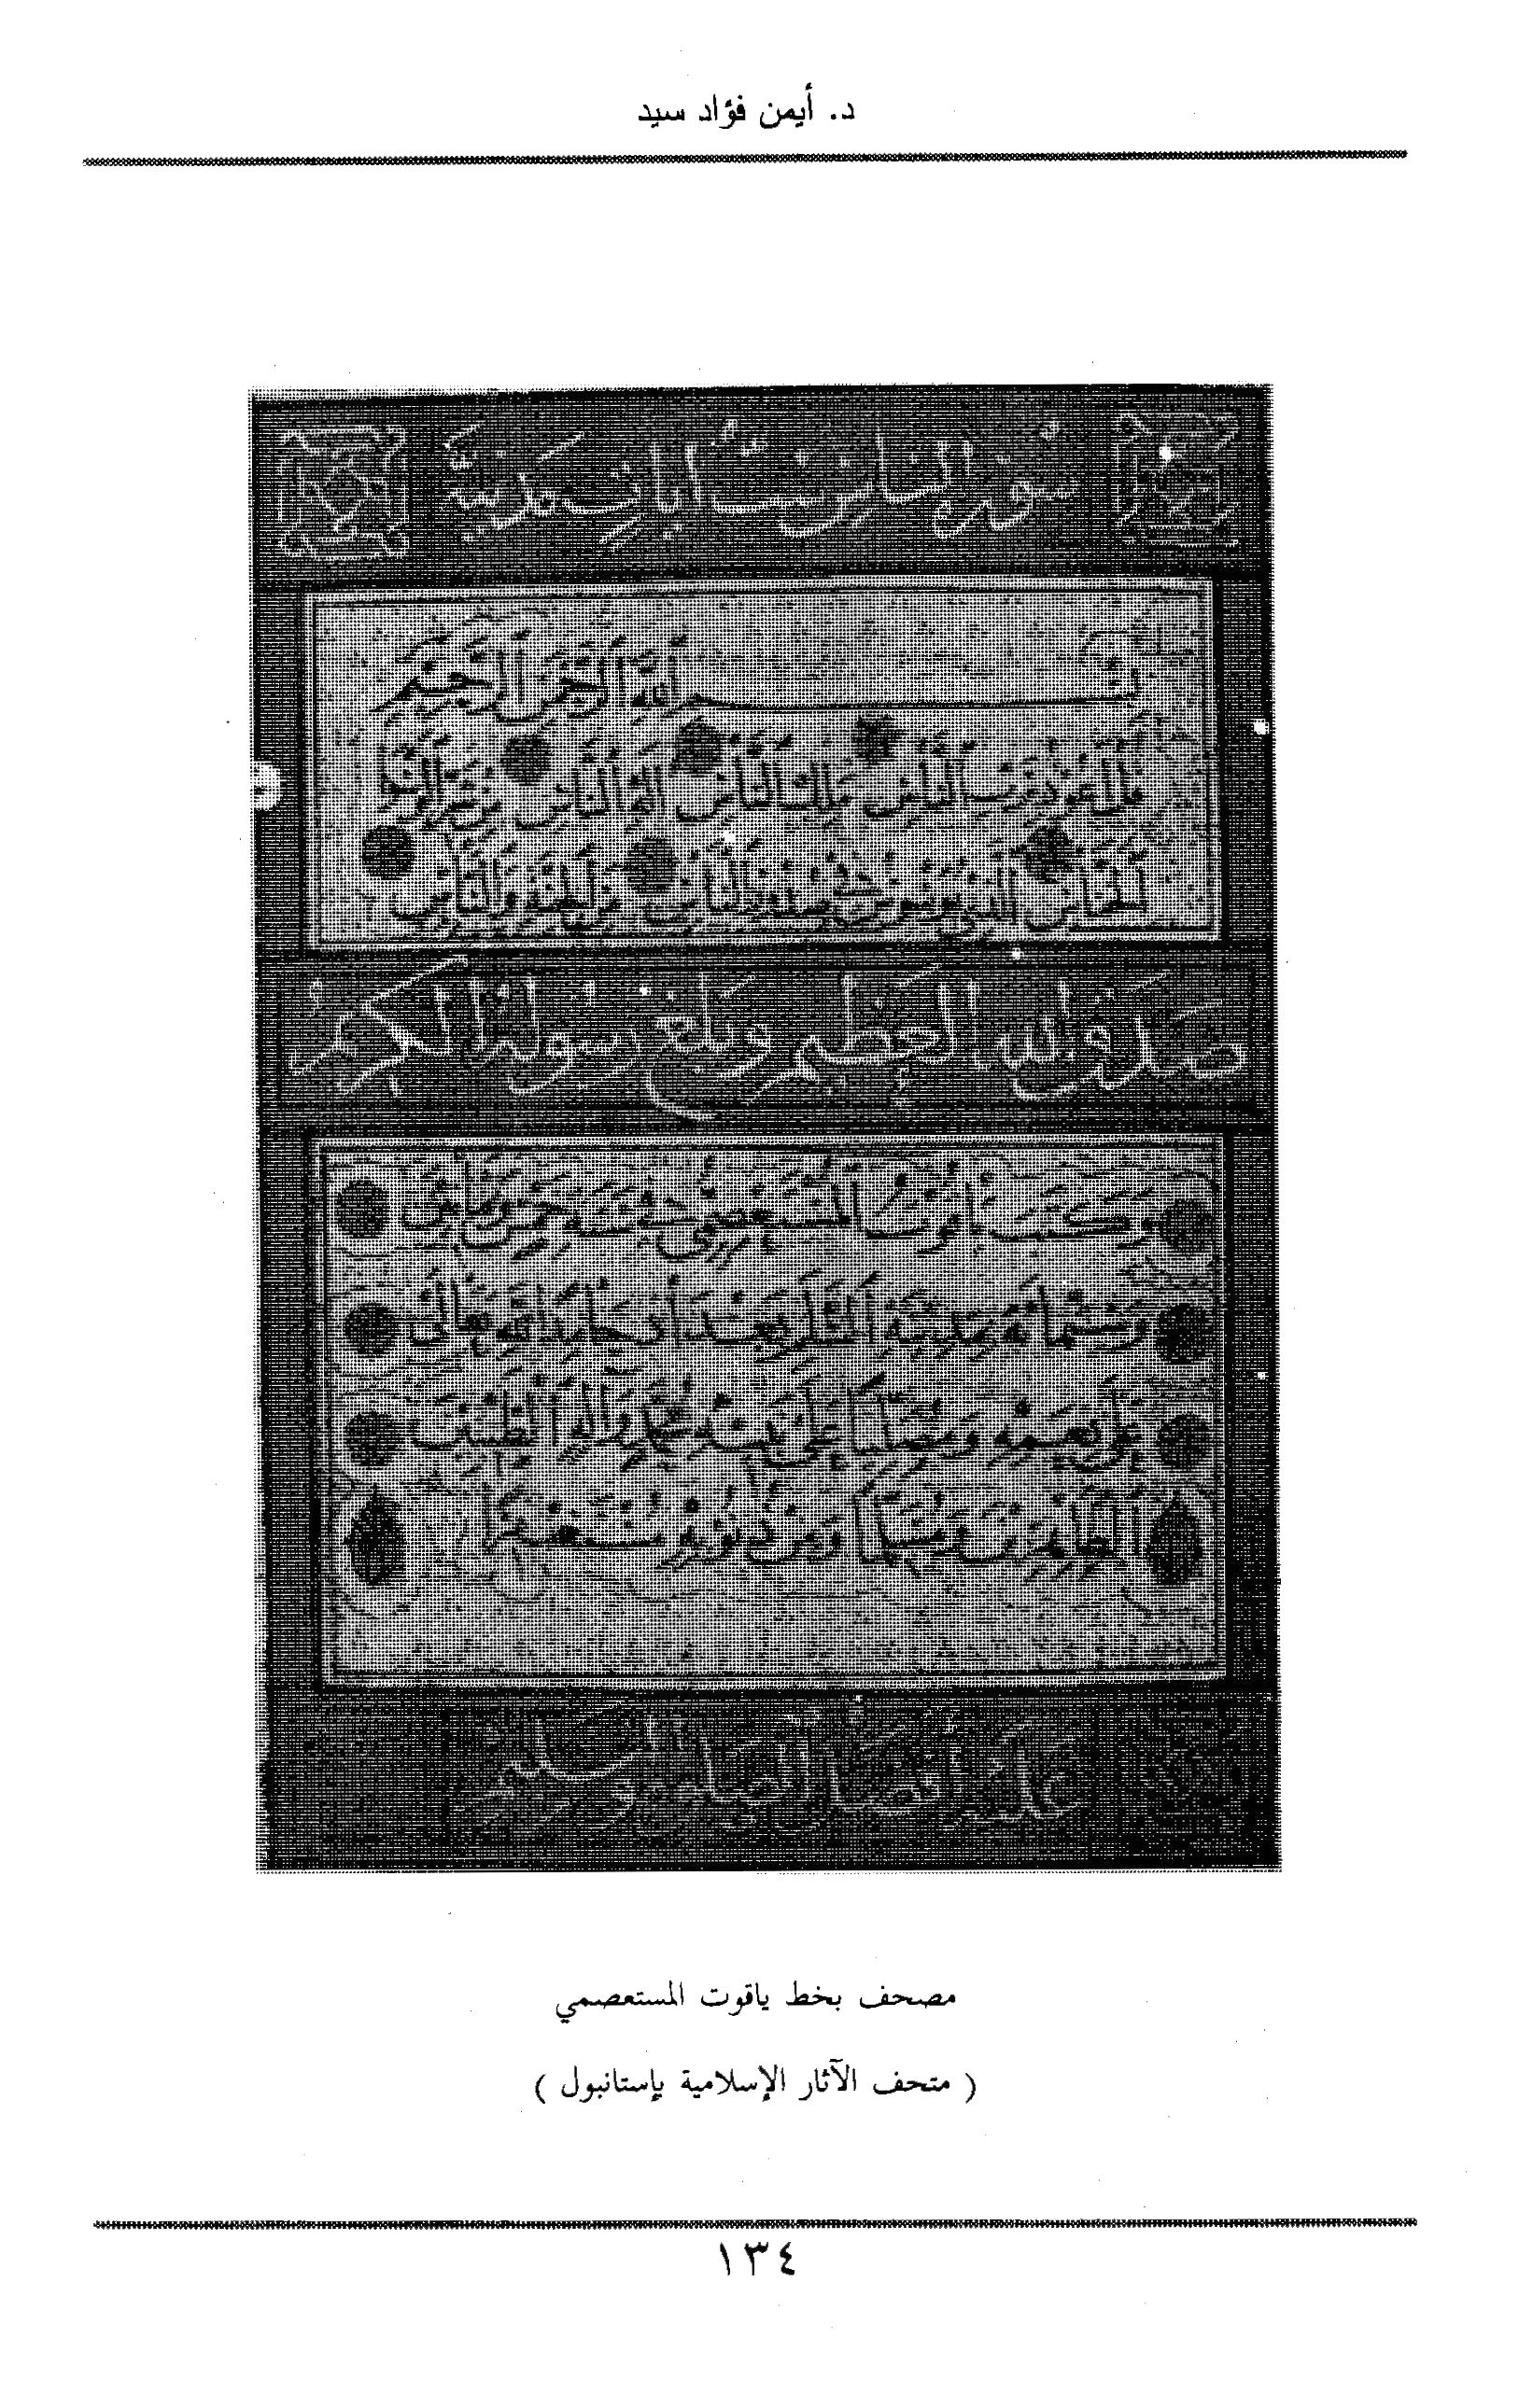 د. أيمن فؤاد سيد
سورة الناس ست آيات مدنية
بسم الله الرحمن الرحيم
قل أعوذ برب الناس ملك الناس إله الناس من شر الوسوا
س الخناس الذي يوسوس في صدور الناس من الجنة والناس
صدق الله العظيم وبلغ رسوله الكريم
وكتب ياقوت المستعصمي في سنة خمس وثمانين
وستمائة بمدينة السلم بغداد حامدا لله تعالى
على نعمه ومصليا على نبيه محمد وآله الطيبين
الطاهرين ومسلما ومن ذنوبه مستغفرا
عليه أفضل الصلاة والسلام
مصحف بخط ياقوت المستعصمي
( متحف الآثار الإسلامية بإستانبول )
١٣٤